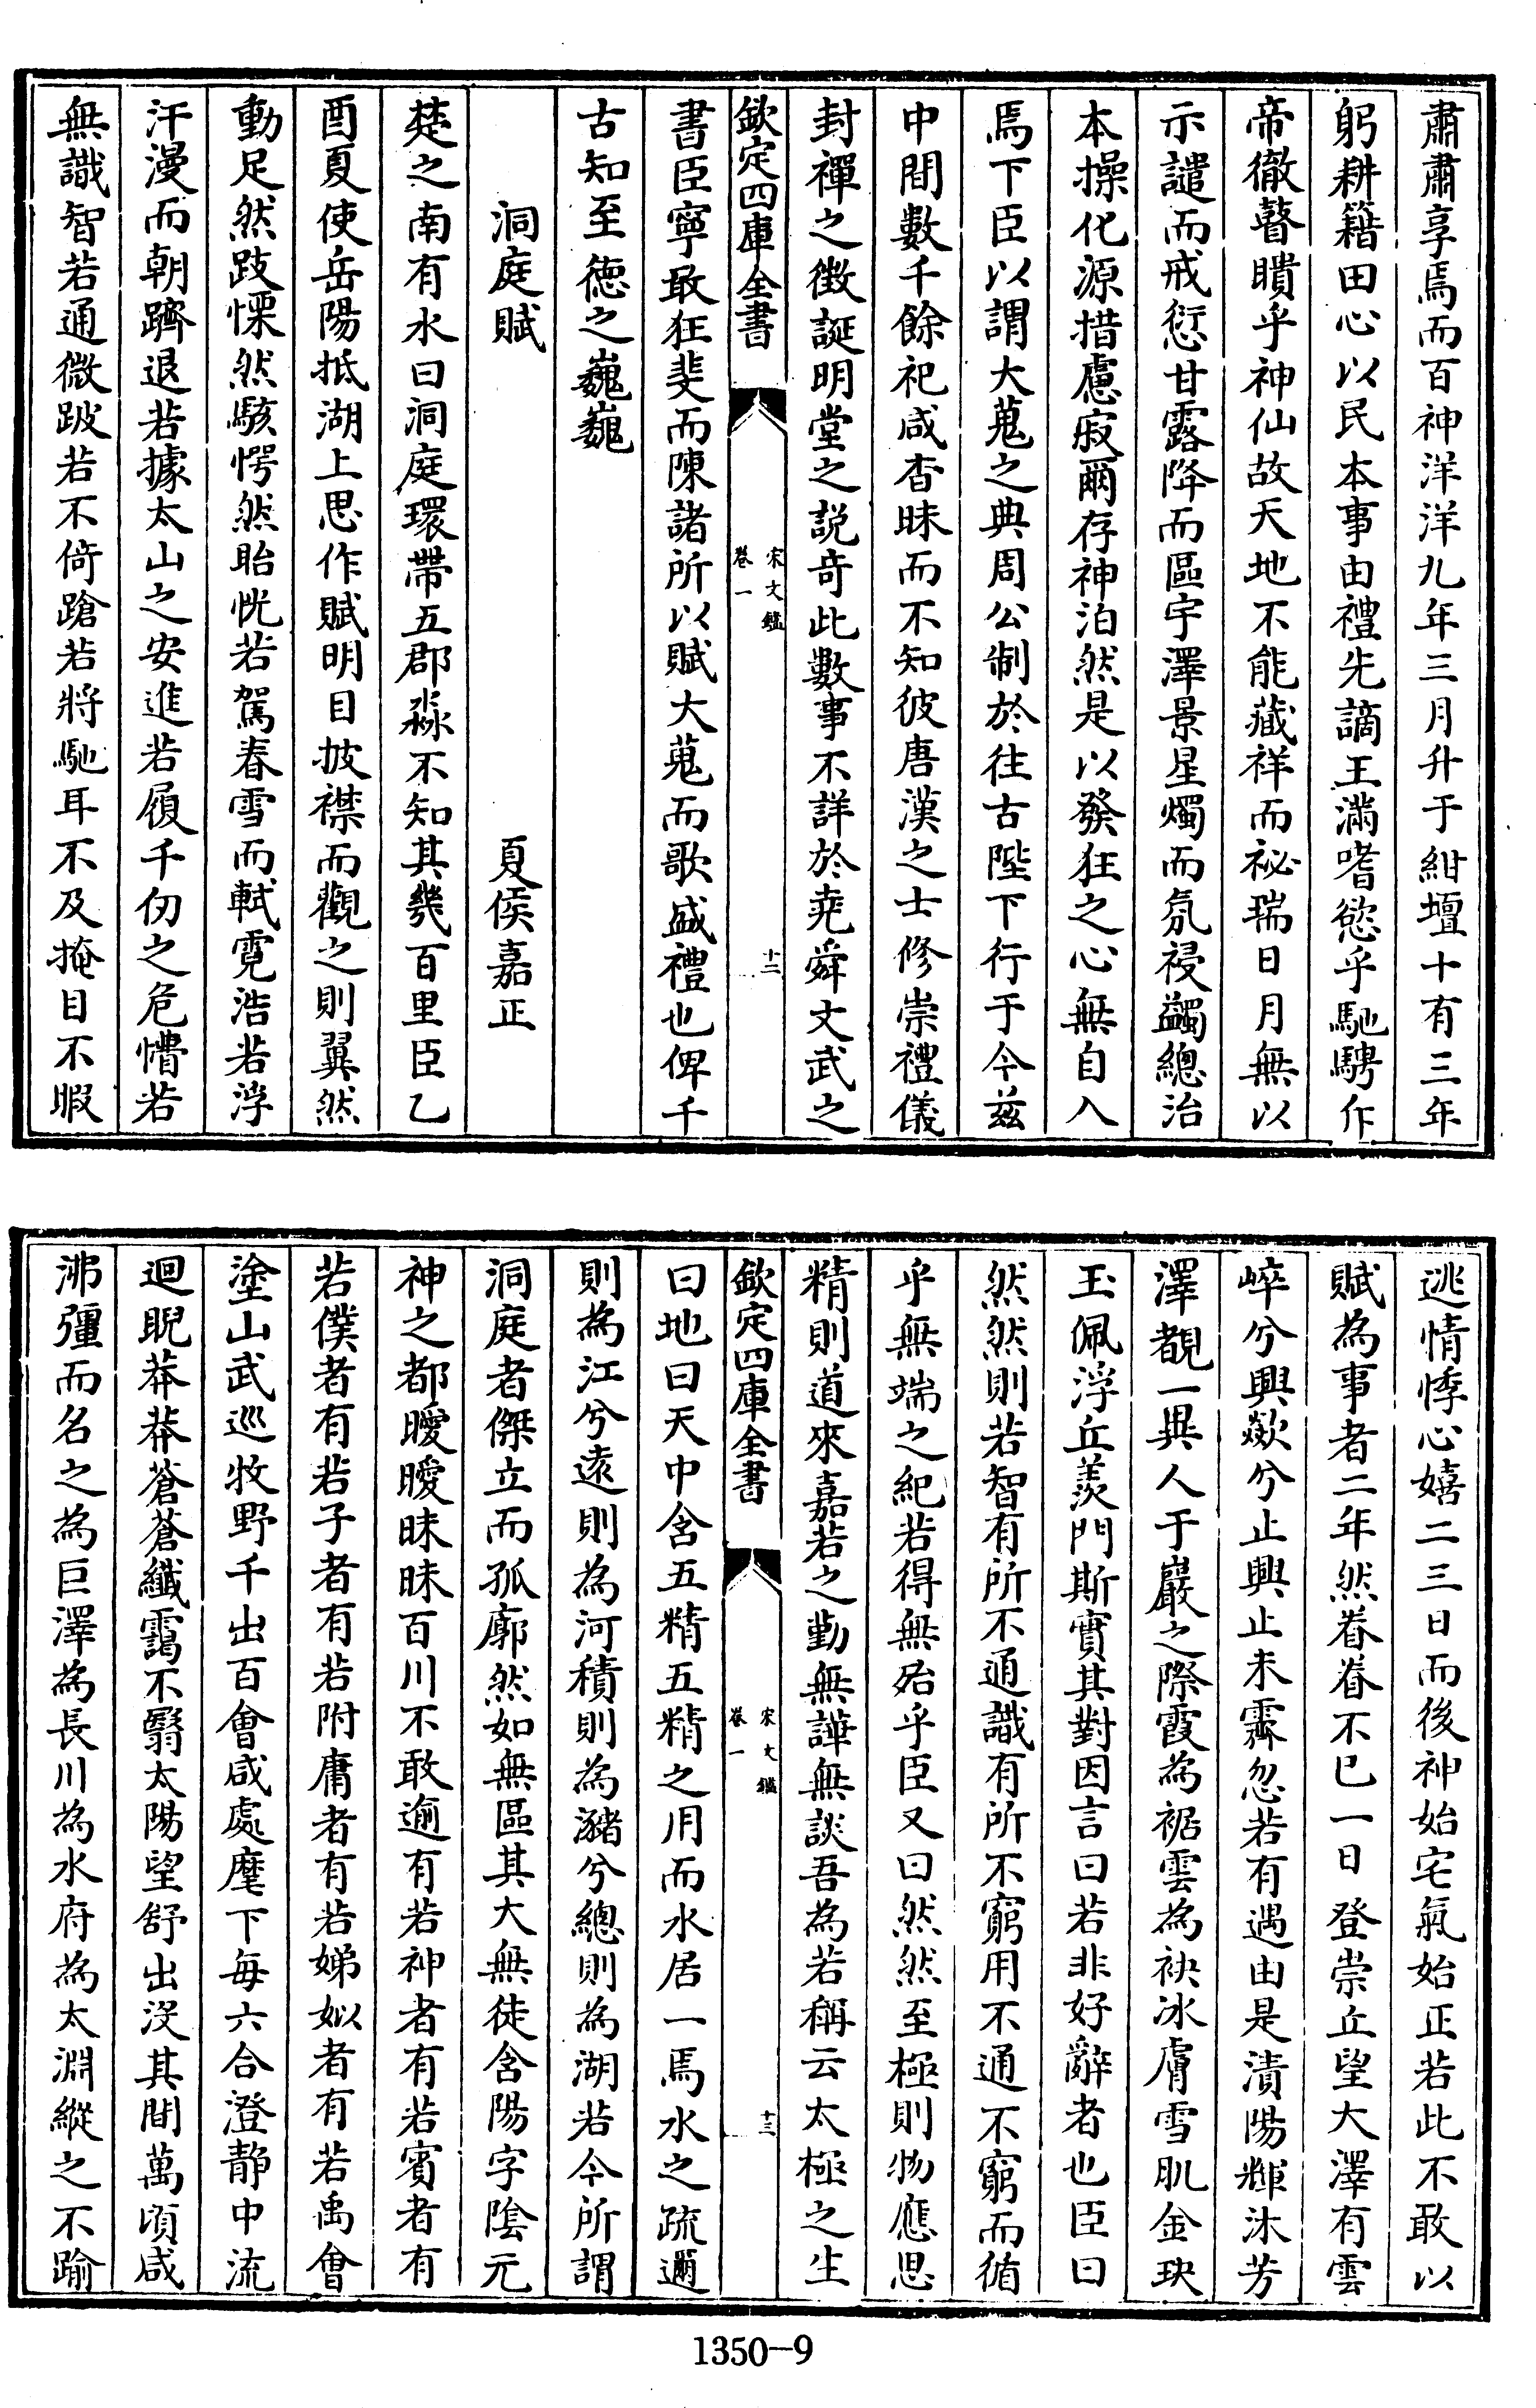 肅肅享焉而百神洋洋九年三月升于紺壇十有三年
躬耕籍田心以民本事由禮先謫王滿嗜慾乎馳騁作
帝徹瞽瞶乎神仙故天地不能藏祥而祕瑞日月無以
示譴而戒愆甘露降而區宇澤景星燭而氛祲蠲總治
本操化源措慮寂爾存神泊然是以發狂之心無自入
焉下臣以謂大蒐之典周公制於往古陛下行于今兹
中間數千餘祀咸杳昧而不知彼唐漢之士修崇禮儀
封禪之徴誕明堂之説奇此數事不詳於堯舜文武之
欽定四庫全書
宋文鑑
卷一
十二
書臣寧敢狂斐而陳諸所以賦大蒐而歌盛禮也俾千
古知至徳之巍巍
洞庭賦 夏侯嘉正
楚之南有水曰洞庭環帶五郡淼不知其幾百里臣乙
酉夏使岳陽抵湖上思作賦明目披襟而觀之則翼然
動足然跂慄然駭愕然眙恍若駕春雪而軾霓浩若浮
汗漫而朝躋退若據太山之安進若履千仞之危懵若
無識智若通微跛若不倚蹌若將馳耳不及掩目不暇
逃情悸心嬉二三日而後神始宅氣始正若此不敢以
賦為事者二年然眷眷不已一日登崇丘望大澤有雲
崪兮興歘兮止興止未霽忽若有遇由是漬陽輝沐芳
澤覩一異人于巖之際霞為裾雲為袂冰膚雪肌金玦
玉佩浮丘羨門斯實其對因言曰若非好辭者也臣曰
然然則若智有所不通識有所不窮用不通不窮而循
乎無端之紀若得無殆乎臣又曰然然至極則物應思
精則道來嘉若之勤無譁無談吾為若稱云太極之生
欽定四庫全書
宋文鑑
卷一
十三
曰地曰天中含五精五精之用而水居一焉水之疏邇
則為江兮遠則為河積則為瀦兮總則為湖若今所謂
洞庭者傑立而孤廓然如無區其大無徒含陽字陰元
神之都曖曖昧昧百川不敢逾有若神者有若賓者有
若僕者有若子者有若附庸者有若娣姒者有若禹㑹
塗山武巡牧野千出百㑹咸處麾下每六合澄静中流
迴睨莽莽蒼蒼纎靄不翳太陽望舒出沒其間萬頃咸
沸彊而名之為巨澤為長川為水府為太淵縱之不踰
1350-9